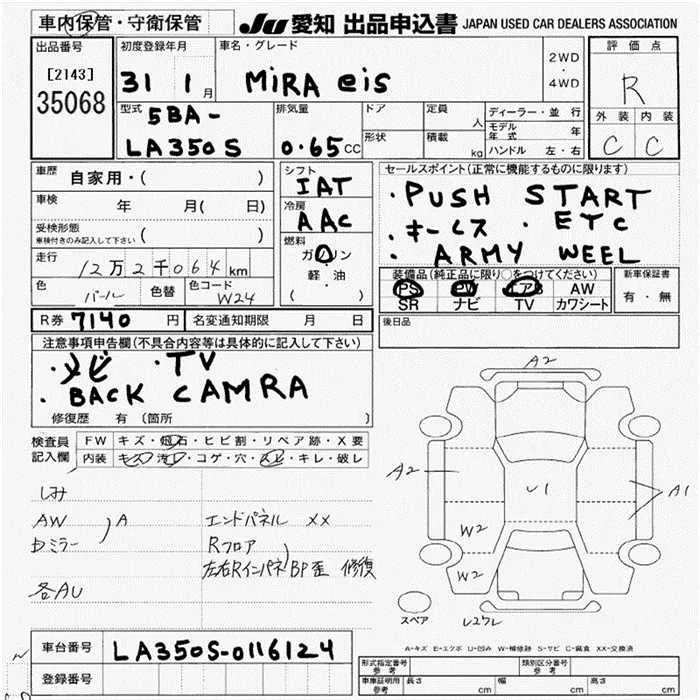 車内保管・守衛保管 JU 愛知 出品申込書 JAPAN USED CAR DEALERS ASSOCIATION
出品番号 初度登録年月 車名・グレード 2WD ・ 4WD 評価点
[2143] 31 1月 MiRA eis R
35068 型式 排気量 ドア 定員 人 ディーラー・並行 外装 内装
5BA- 形状 積載 kg モデル年式 年 C C
LA350S 0.65cc ハンドル 左・右
車歴 自家用・( ) シフト セールスポイント(正常に機能するものに限ります)
車検 年 月( 日) IAT ・PUSH START
受検形態 冷房 ・キーレス ・ETC
車検付きのみ記入して下さい ( ) AAC ・ARMY WEEL
走行 12万2千064km 燃料 ガソリン 軽・油 ( )
装備品(純正品に限り○をつけてください) 新車保証書
色 パール 色替 色コード W24 PS PW エアB AW 有・無
SR ナビ TV カワシート
R券 7140円 名変通知期限 月 日 後日品
注意事項申告欄(不具合内容等は具体的に記入して下さい)
・ナビ ・TV
・BACK CAMRA
修復歴 有 (箇所 )
検査員記入欄 FW キズ・飛石・ヒビ割・リペア跡・X要
内装 キズ・汚れ・コゲ・穴・スレ・キレ・破レ
しみ
AW A エンドパネル XX
Dミラー Rフロア
左右Rインパネ BP歪 修復
各AU
A2
A2 U1 A1
W2
W2
スペア
A-キズ E-エクボ U-凹み W-補修跡 S-サビ C-腐食 XX-交換済
車台番号 LA350S-0116124
登録番号
形式指定番号 参考 類別区分番号 参考
車庫証明用 参考 長さ cm 幅 cm 高さ cm